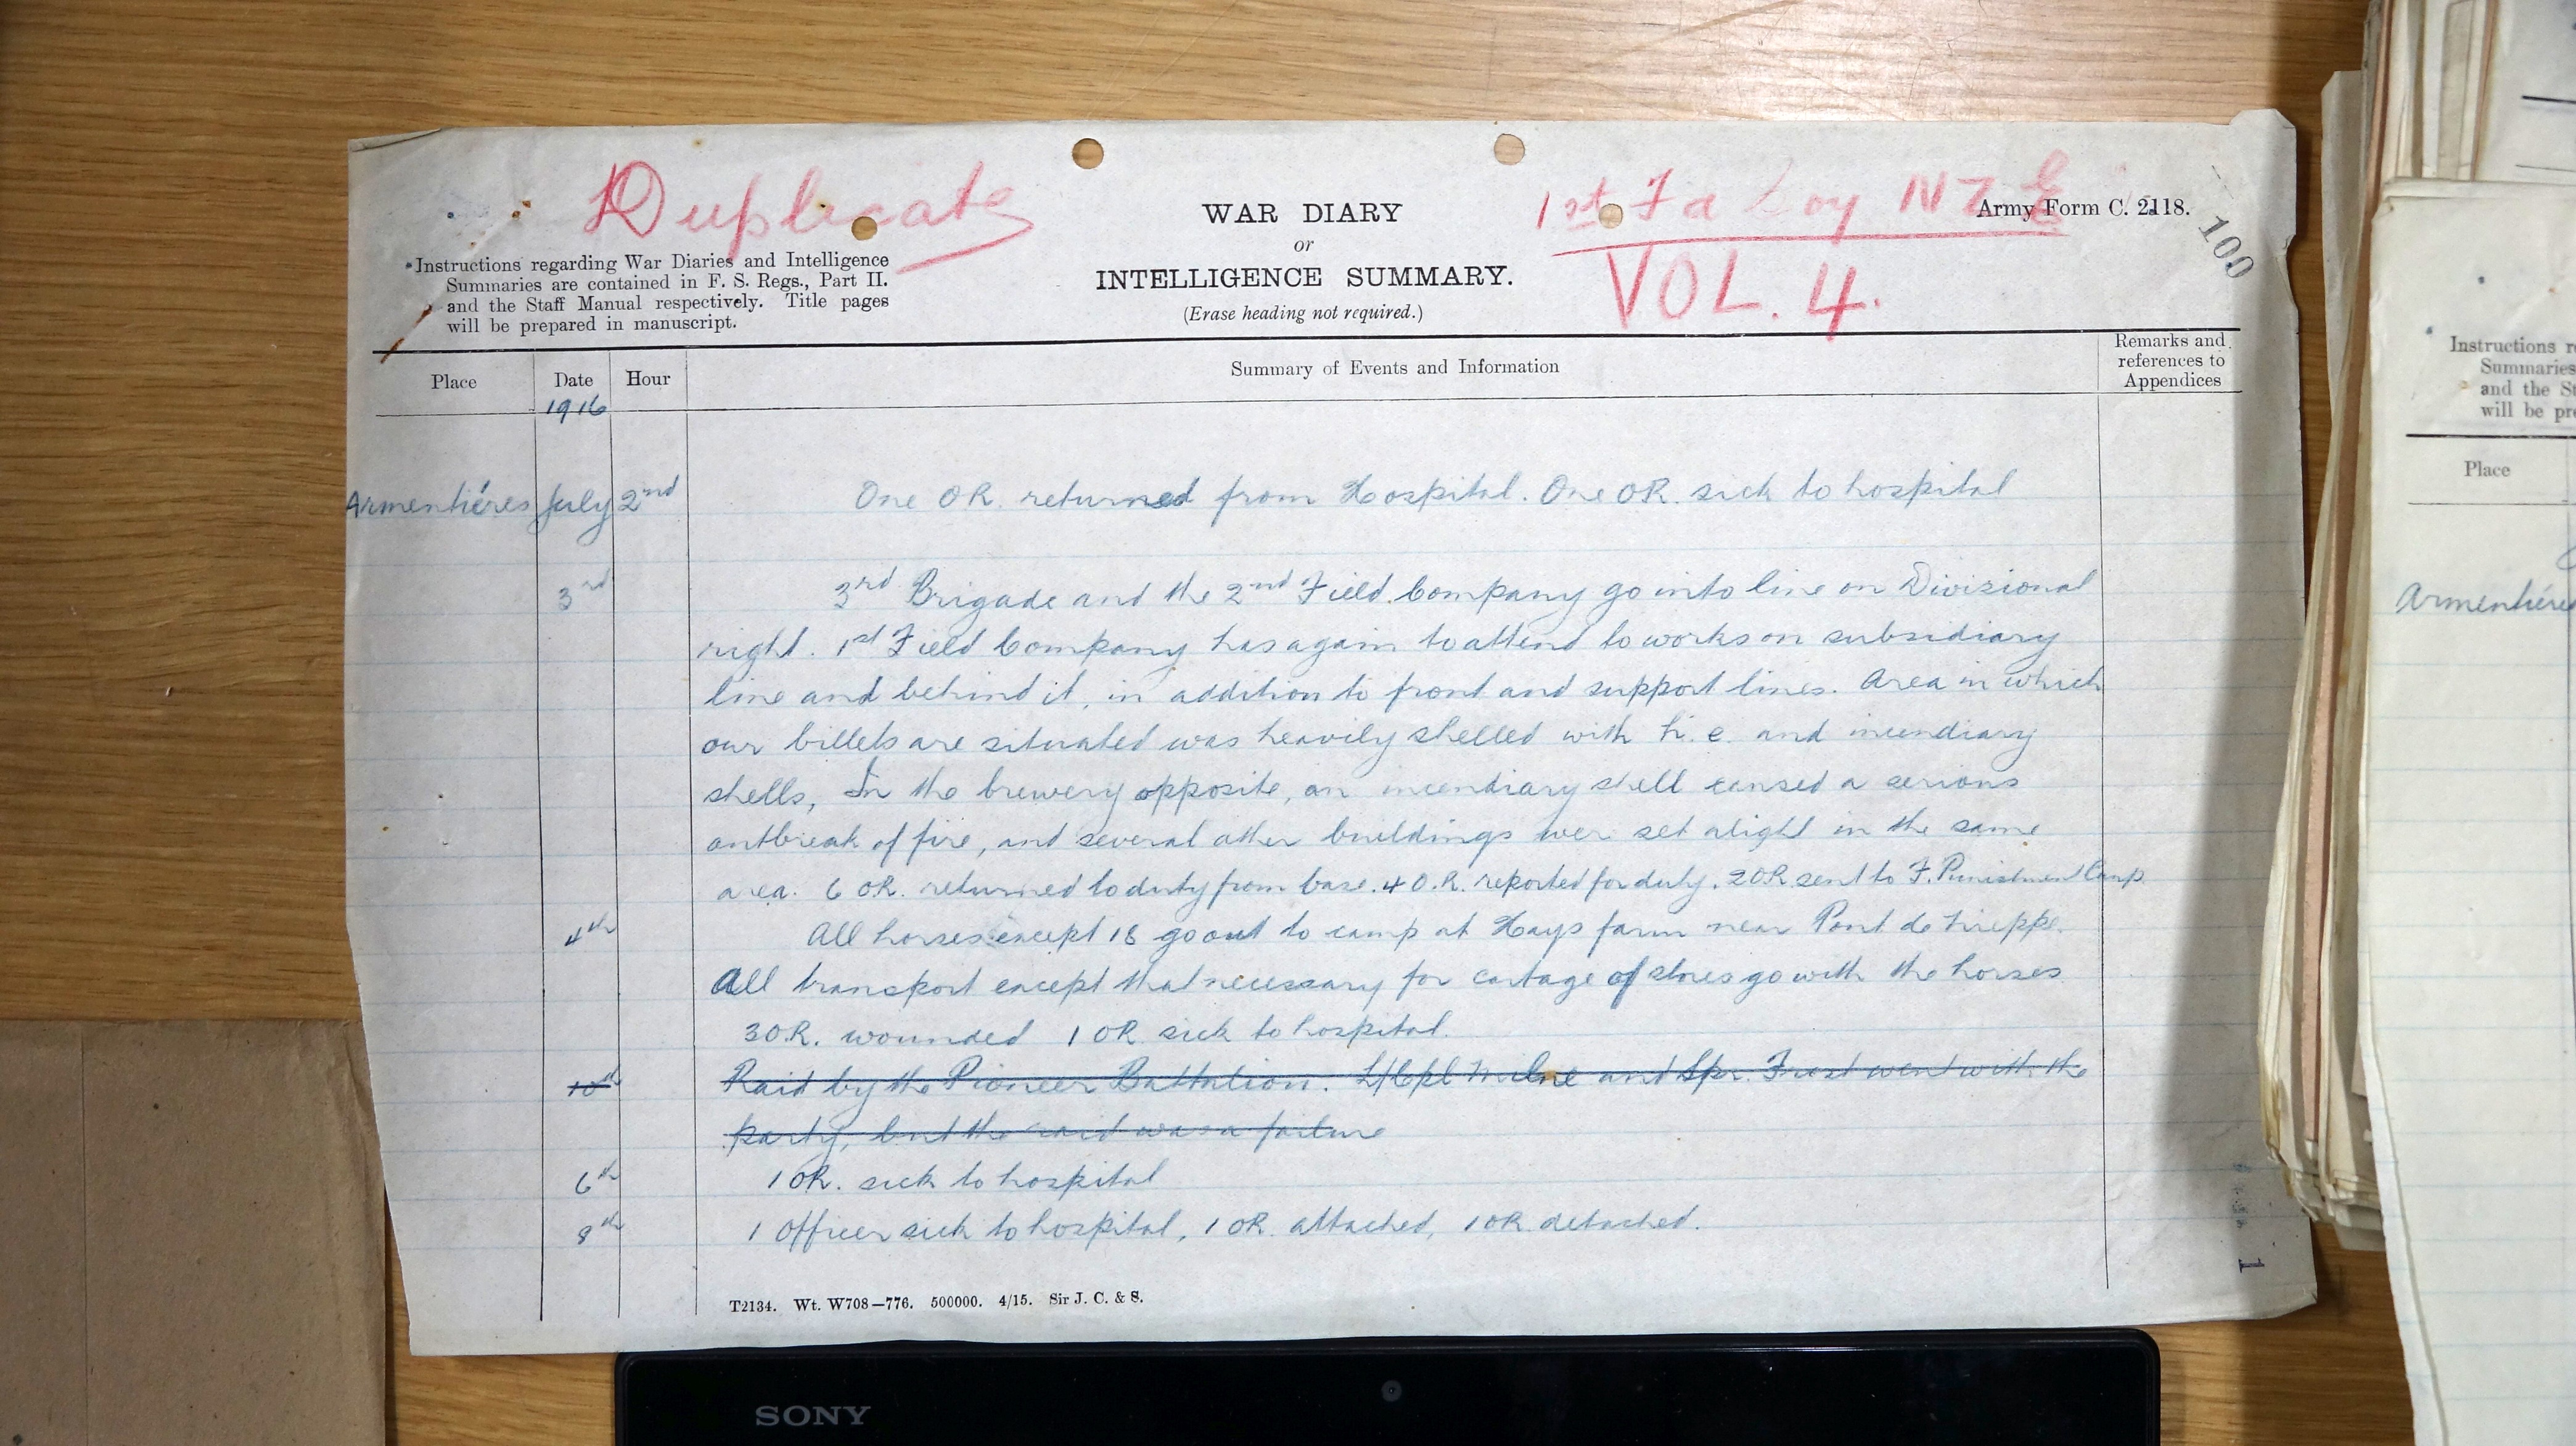 Duplicate
1st Fd Coy NZE
VOL. 4.
WAR DIARY
or
INTELLIGENCE SUMMARY.
(Erase heading not required.)
Army Form C. 2118.
100
Instructions regarding War Diaries and Intelligence
Summaries are contained in F. S. Regs., Part II.
and the Staff Manual respectively. Title pages
will be prepared in manuscript.
Place Date Hour Summary of Events and Information Remarks and references to Appendices
1916
Armentiéres July 2nd One OR. returned from Hospital. One OR. sick to hospital
3rd 3rd Brigade and the 2nd Field Company go into line on Divisional
right. 1st Field Company has again to attend to works on subsidiary
line and behind it, in addition to front and support lines. Area in which
our billets are situated was heavily shelled with h.e. and incendiary
shells, In the brewery opposite, an incendiary shell caused a serious
outbreak of fire, and several other buildings were set alight in the same
area. 6 OR. returned to duty from base. 4 O.R. reported for duty. 2 OR sent to F. Punishment Camp.
4th All horses except 18 go out to camp at Hays farm near Pont de Nieppe.
All transport except that necessary for cartage of stores go with the horses
3 O.R. wounded 1 OR sick to hospital.
10th Raid by the Pioneer Battalion. L/Cpl Milne and Spr. Frost went with the
party, but the raid was a failure
6th 1 OR. sick to hospital
8th 1 Officer sick to hospital, 1 OR attached, 1 OR detached.
T2134. Wt. W708—776. 500000. 4/15. Sir J. C. & S.
1
SONY
Instructions
Summaries
and the
will be
Place
Armentiére